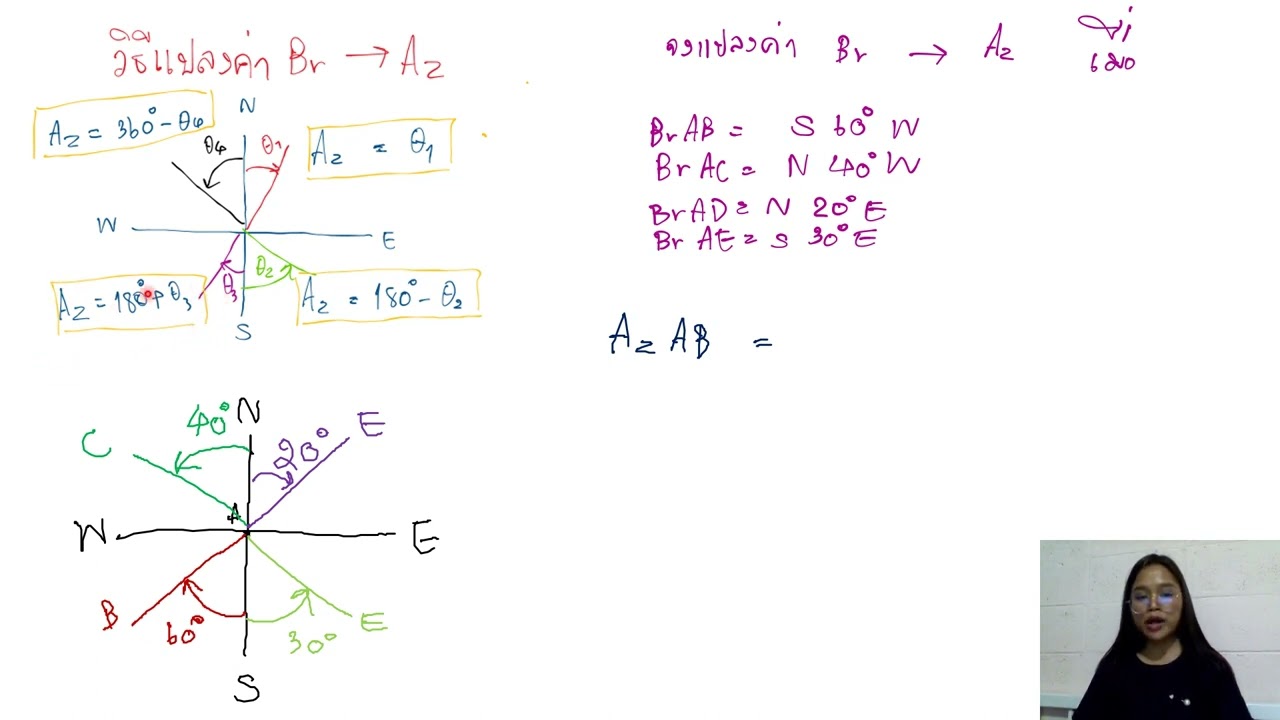 วิธีแปลงค่า Br → Az
N
Az = 360° - θ4
θ4
θ1
Az = θ1
W
E
θ3
θ2
Az = 180° + θ3
Az = 180° - θ2
S
จงแปลงค่า Br → Az
BrAB = S 60° W
BrAC = N 40° W
BrAD = N 20° E
BrAE = S 30° E
Az AB =
40°
N
20°
E
C
A
W
E
B
60°
30°
E
S